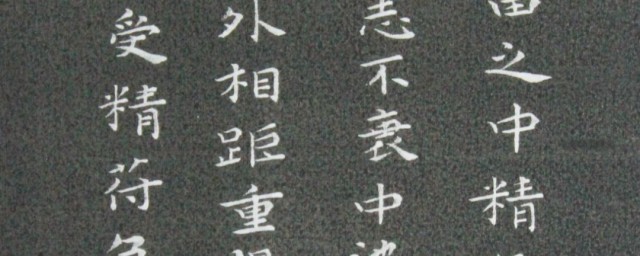 田之中精
志不衰中
外相距重
受精苻